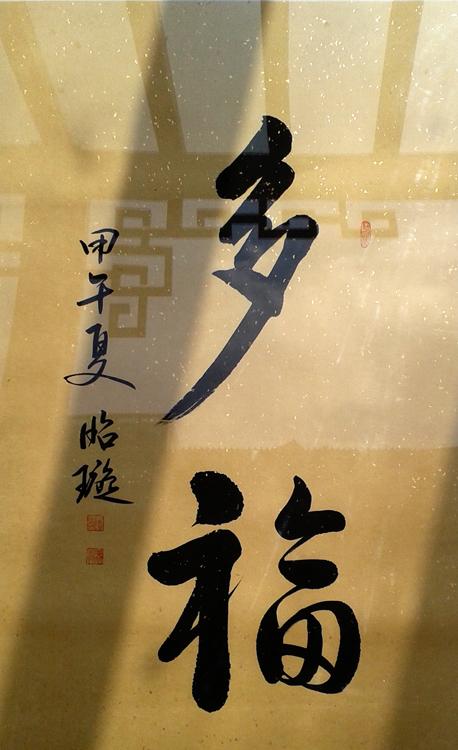 多福
甲午夏 昭璇